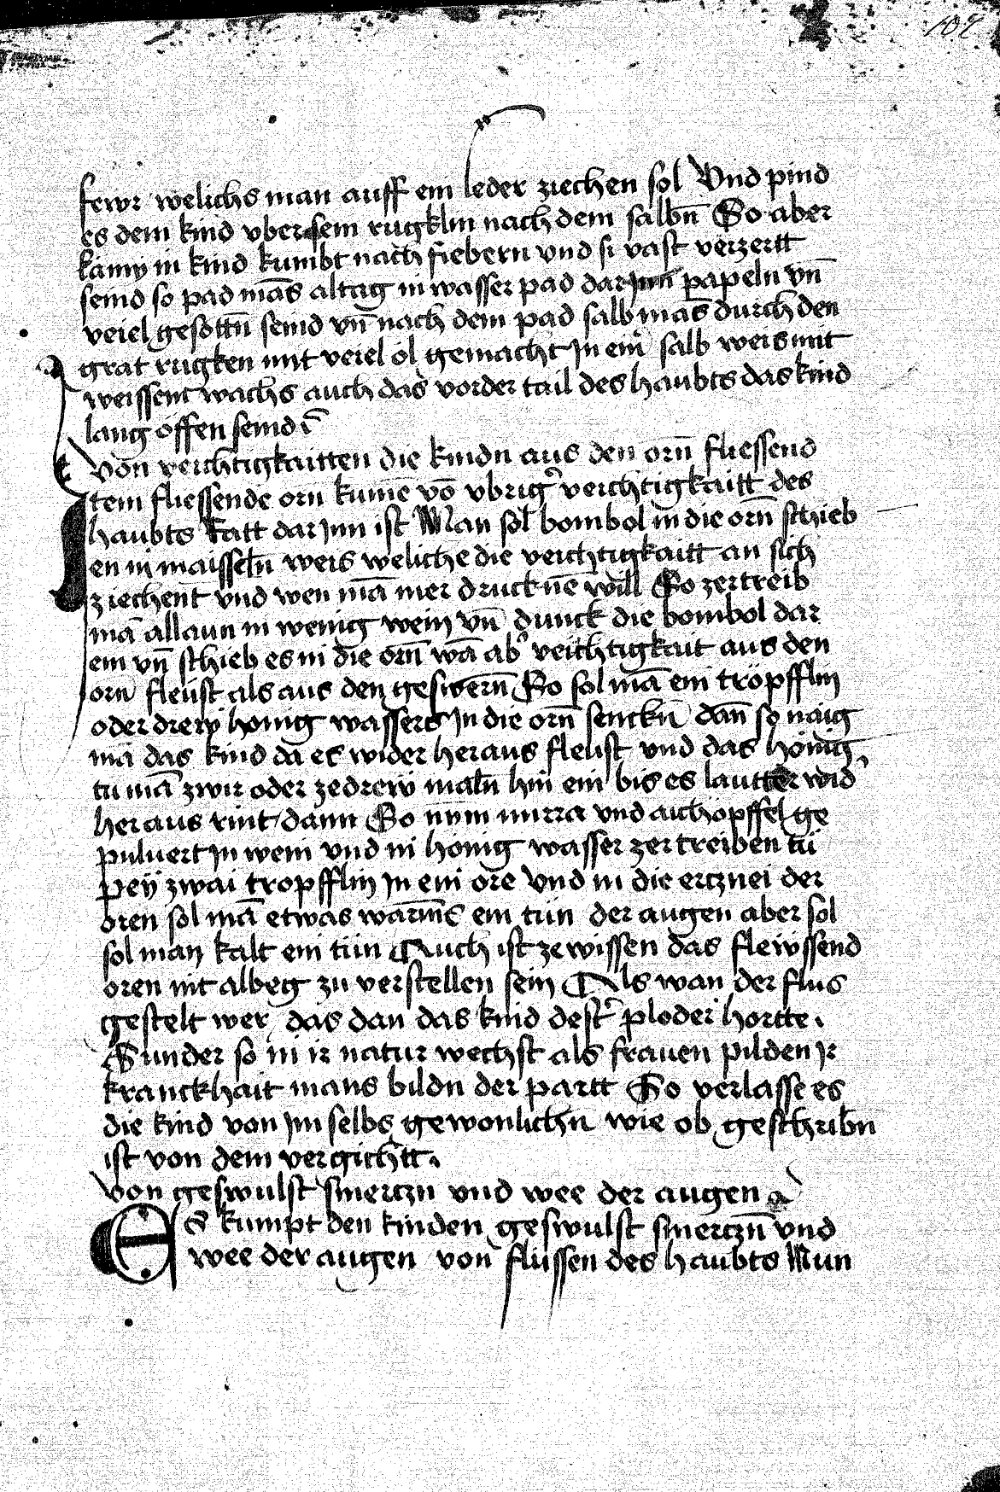 102
fewr welichs man auff ein leder ziechen sol Vnd pind
es dem kind vber sein rugklin nach dem salbn̄ So aber
kämÿ in kind kumbt nach fiebern vnd si vast verzertt
seind so pad mās altag in wasser pad dar Jnn papeln vn̄
veiel gesottn̄ seind vn̄ nach dem pad salb mās durch den
grat rugken mit veiel öl gemacht Jn ein͛ salb weis mit
weissem wachs auch das vorder tail des haubts das kind
lang offen seind
Von veichtigkaitten die kindn aus den orn̄ fliessend
Item fliessende orn kumē vō vbrig͛ veichtigkaitt des
haubts Ratt dar Jnn ist Man sol bombol in die orn̄ schieb
en in maisseln̄ weis weliche die veichtigkaitt an sich
ziechent vnd wen mā mer drucknē will So zertreib
mā allaun in wenig wein vn̄ dunck die bombol dar
ein vn̄ schieb es in die orn̄ wā ab͛ veichtigkait aus den
orn fleüst als aus den geswern̄ So sol mā ein tröpfflin
oder dreÿ hönig wassers Jn die orn̄ senckn̄ dan̄ so naig
mā das kind da es wider heraus fleust vnd das hönig
tu mā zwir oder zedreÿ maln̄ hin ein bis es lautter wid͛
heraus rint dann So nÿm mirra vnd aichöpffel ge
puluert Jn wein vnd in hönig wasser zertreiben tü
peÿ zwai tropfflin Jn ein ore Vnd in die ercznei der
oren sol mā etwas warms ein tün der augen aber sol
sol man kalt ein tün Auch ist ze wissen das fleüssend
oren nit albeg zu verstellen sein Als wan der flus
gestelt wer das dan das kind dest͛ ploder hortte.
Sunder so in ir natur wechst als frauen pilden Jr
kranckhait mans bildn der partt So verlasse es
die kind von Jm selbs gewonlichn̄ wie ob geschribn̄
ist von dem vergichtt.
Von geswulst smerczn vnd wee der augen
Es kumpt den kinden geswulst smerczn̄ vnd
wee der augen von flüssen des haubts Nun